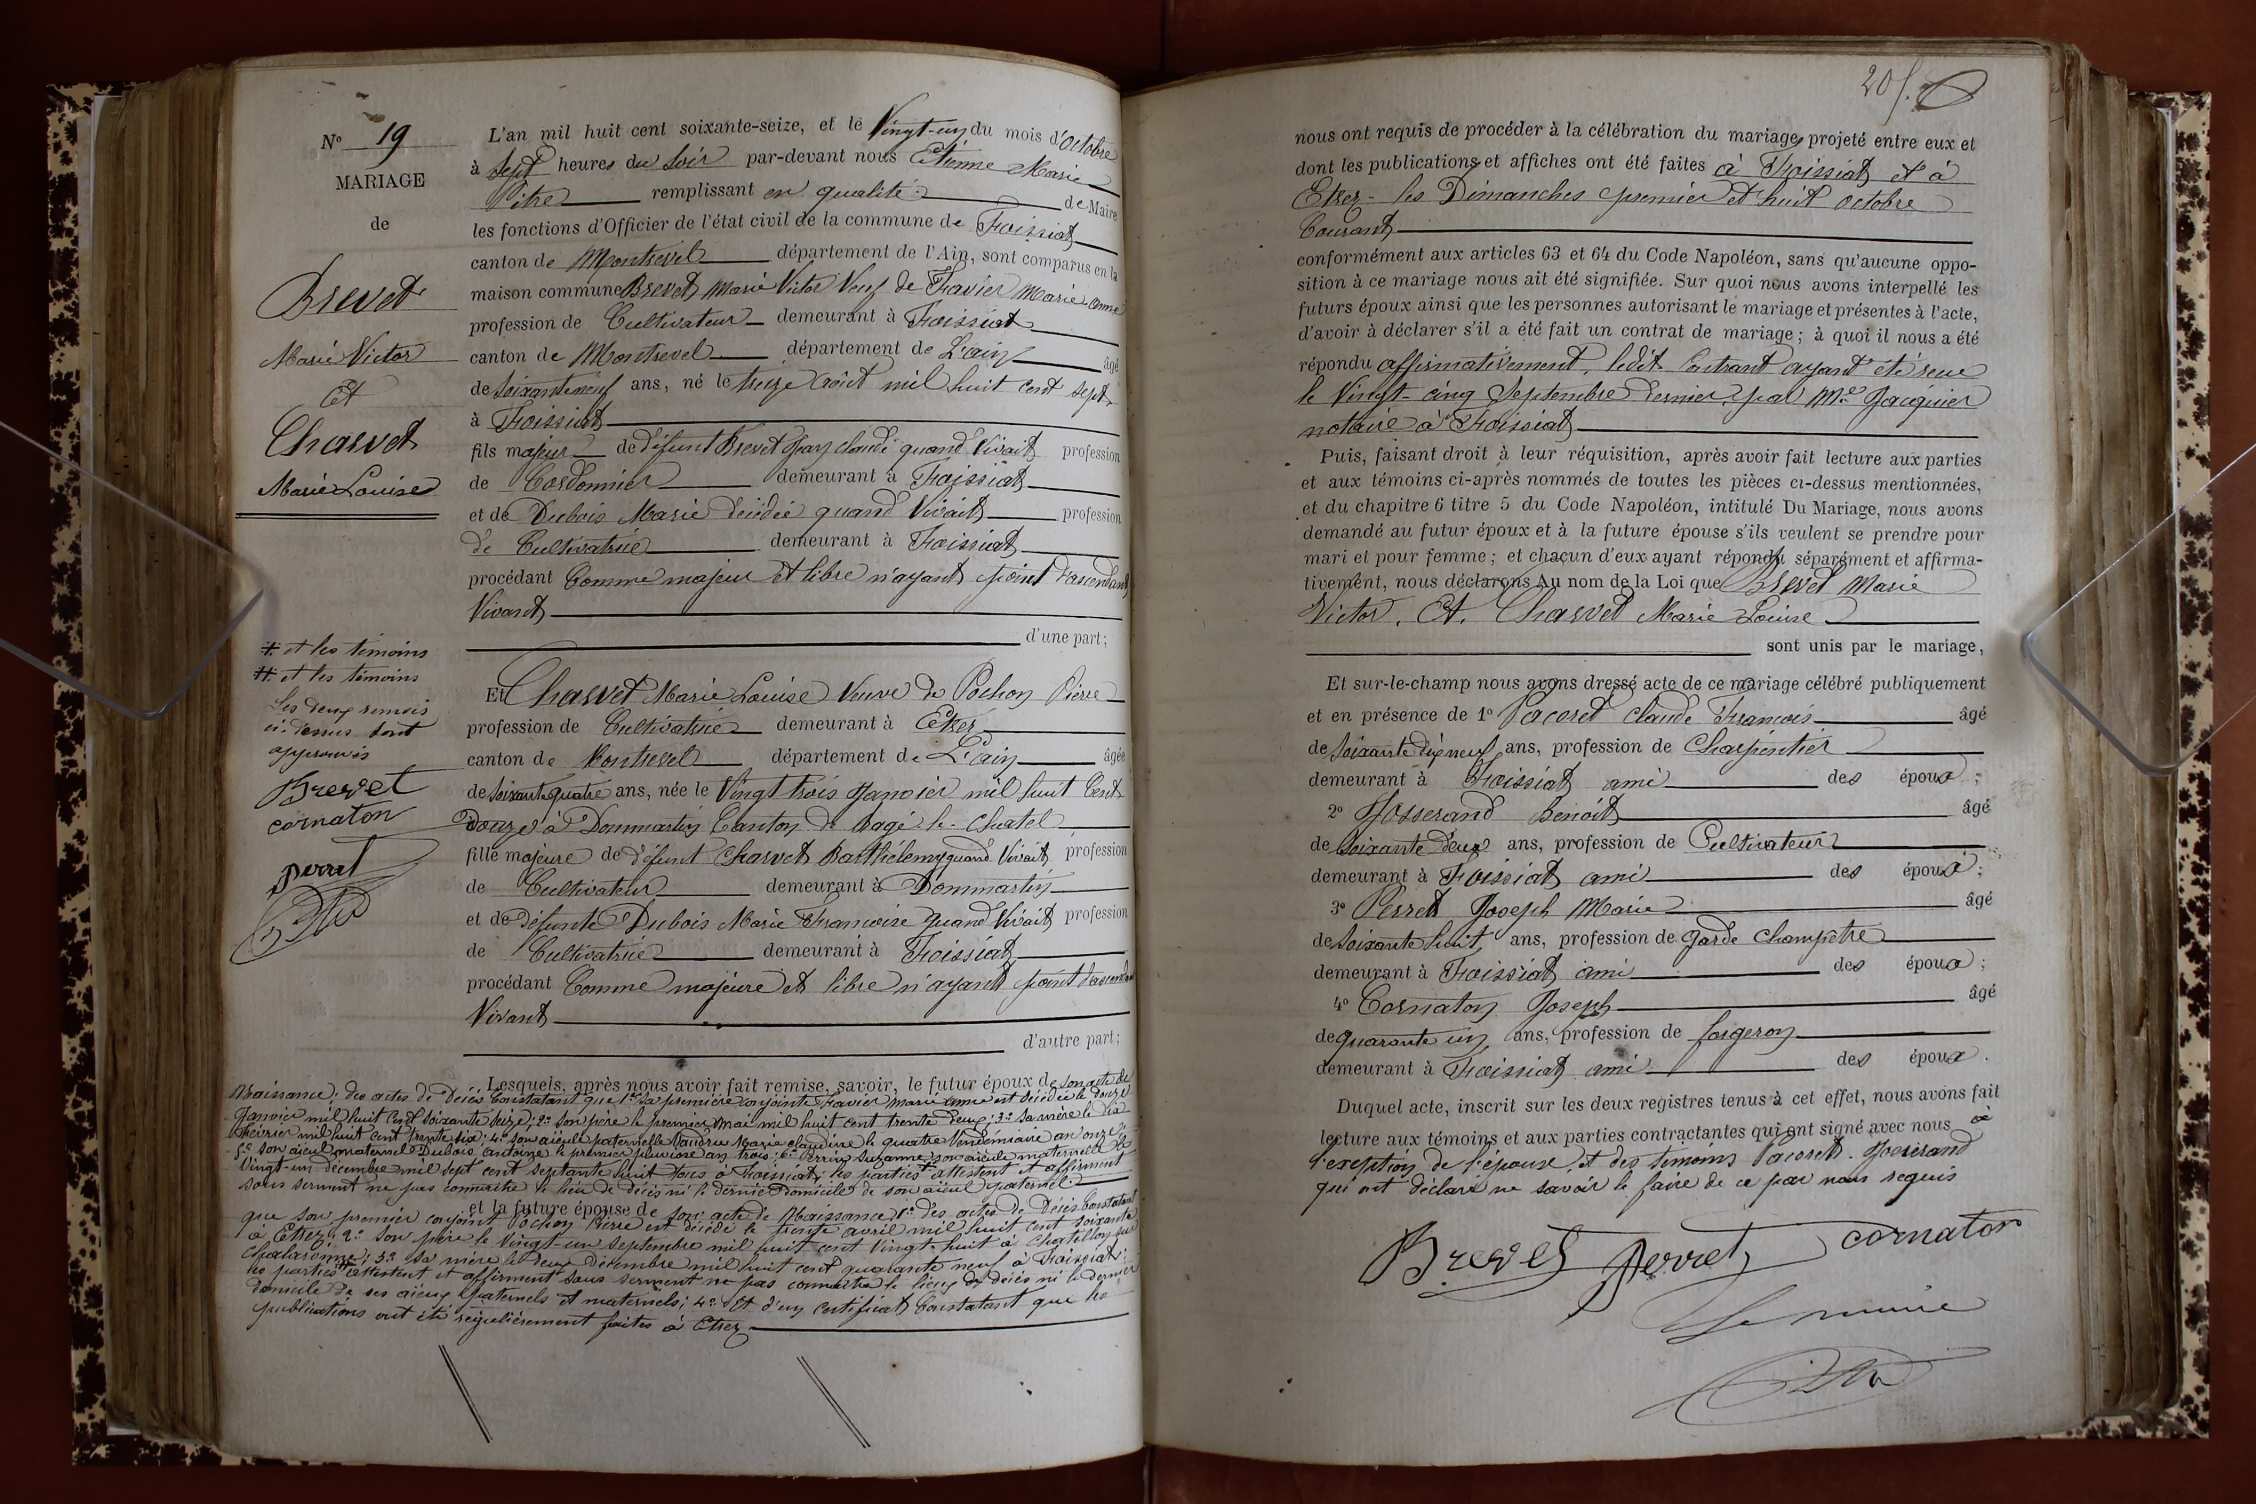 N° 19
MARIAGE
de
Brevet
Marie Victor
Et
Charvet
Marie Louise
+ et les témoins
++ et les témoins
Les deux renvois
ci-dessus sont
approuvés
Brevet
cornaton
perret
L'an mil huit cent soixante-seize, et le Vingt-un du mois d'Octobre
à Sept heures du Soir par-devant nous Etienne Marie
Pitre remplissant en qualité de Maire
les fonctions d'Officier de l'état civil de la commune de Foissiat
canton de Montrevel département de l'Ain, sont comparus en la
maison commune Brevet Marie Victor Veuf de Favier Marie Anne
profession de Cultivateur demeurant à Foissiat
canton de Montrevel département de L'ain âgé
de Soixante neuf ans, né le treize Août mil huit cent sept
à Foissiat
fils majeur de défunt Brevet Jean Claude quand Vivait profession
de Cordonnier demeurant à Foissiat
et de Dubois Marie décédée quand Vivait profession
de Cultivatrice demeurant à Foissiat
procédant Comme majeur et libre n'ayant point d'ascendant
Vivant
d'une part;
Et Charvet Marie Louise Veuve de Pochon Pierre
profession de Cultivatrice demeurant à Etrez
canton de Montrevel département de L'ain âgée
de Soixante quatre ans, née le Vingt trois Janvier mil huit Cent
Douze à Dommartin Canton de Bagé-le-Chatel
fille majeure de défunt Charvet Barthélemy quand Vivait profession
de Cultivateur demeurant à Dommartin
et de défunte Dubois Marie Françoise quand Vivait profession
de Cultivatrice demeurant à Foissiat
procédant Comme majeure et libre n'ayant point d'ascendant
Vivant
d'autre part;
Lesquels, après nous avoir fait remise, savoir, le futur époux de son acte de
Naissance; des actes de Décès Constatant que 1° Sa première conjointe Favier Marie anne est décédée le douze
Janvier mil huit Cent soixante seize; 2° son père le premier mai mil huit cent trente deux; 3° sa mère le dix
Février mil huit cent trente six; 4° son aïeule paternelle Vaudru Marie Claudine le quatre Vendémiaire an onze;
5° son aïeul maternel Dubois Antoine le premier pluviose an trois; 6° Perrin Suzanne son aïeule maternelle le
Vingt-un décembre mil sept cent septante huit tous à Foissiat; les parties attestent et affirment
sous serment ne pas connaitre le lieu de décès ni le dernier Domicile de son aïeul paternel.
et la future épouse de son acte de Naissance 1° des actes de Décès Constatant
que son premier conjoint Pochon Pierre est décédé le trente avril mil huit cent soixante
à Etrez; 2° son père le Vingt-un septembre mil huit cent Vingt-huit à Chatillon sur
Chalaronne; 3° sa mère le deux décembre mil huit cent quarante neuf à Foissiat;
les parties ++ attestent et affirment sous serment ne pas connaitre le lieu de décès ni le dernier
domicile de ses aïeux paternels et maternels; 4° Et d'un Certificat Constatant que les
publications ont été régulièrement faites à Etrez
205.
nous ont requis de procéder à la célébration du mariage projeté entre eux et
dont les publications et affiches ont été faites à Foissiat et à
Etrez - les Dimanches premier et huit octobre
Courant
conformément aux articles 63 et 64 du Code Napoléon, sans qu'aucune oppo-
sition à ce mariage nous ait été signifiée. Sur quoi nous avons interpellé les
futurs époux ainsi que les personnes autorisant le mariage et présentes à l'acte,
d'avoir à déclarer s'il a été fait un contrat de mariage; à quoi il nous a été
répondu affirmativement, ledit Contrant ayant été reçu
le Vingt-cinq Septembre dernier par Me Jacquier
notaire à Foissiat
Puis, faisant droit à leur réquisition, après avoir fait lecture aux parties
et aux témoins ci-après nommés de toutes les pièces ci-dessus mentionnées,
et du chapitre 6 titre 5 du Code Napoléon, intitulé Du Mariage, nous avons
demandé au futur époux et à la future épouse s'ils veulent se prendre pour
mari et pour femme; et chacun d'eux ayant répondu séparément et affirma-
tivement, nous déclarons Au nom de la Loi que Brevet Marie
Victor. Et. Charvet Marie Louise
sont unis par le mariage,
Et sur-le-champ nous avons dressé acte de ce mariage célébré publiquement
et en présence de 1° Pacoret Claude François âgé
de Soixante dix neuf ans, profession de Charpentier
demeurant à Foissiat ami des époux;
2° Josserand Benoît âgé
de Soixante deux ans, profession de Cultivateur
demeurant à Foissiat ami des époux;
3° Perret Joseph Marie âgé
de soixante huit ans, profession de garde champêtre
demeurant à Foissiat ami des époux;
4° Cornaton Joseph âgé
de quarante un ans, profession de forgeron
demeurant à Foissiat ami des époux.
Duquel acte, inscrit sur les deux registres tenus à cet effet, nous avons fait
lecture aux témoins et aux parties contractantes qui ont signé avec nous à
l'exeption de l'épouse, et des témoins Pacoret. Josserand
qui ont déclaré ne savoir le faire de ce par nous requis
Brevet perret cornaton
Le maire